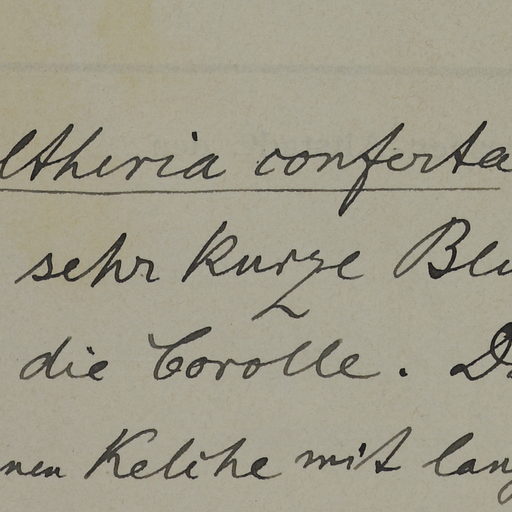 ltheria conferta
sehr kurze Blu
die Corolle. D
nen Kelche mit lang